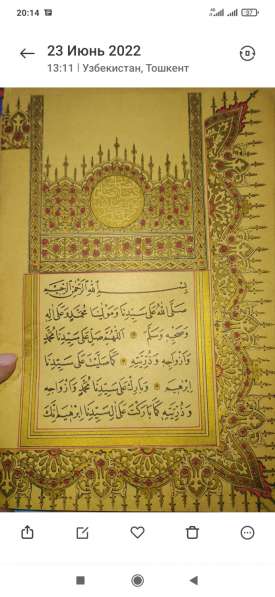 20:14
37
23 Июнь 2022
13:11 | Узбекистан, Ташкент
بسم الله الرحمن الرحيم
صَلَّى اللهُ عَلَى سَيِّدِنَا وَمَوْلَانَا مُحَمَّدٍ وَعَلَى آلِهِ
وَصَحْبِهِ وَسَلَّمَ اَللّٰهُمَّ صَلِّ عَلَى سَيِّدِنَا مُحَمَّدٍ
وَاَزْوَاجِهِ وَذُرِّيَّتِهِ كَمَا صَلَّيْتَ عَلَى سَيِّدِنَا
اِبْرٰهِيمَ وَبَارِكْ عَلَى سَيِّدِنَا مُحَمَّدٍ وَاَزْوَاجِهِ
وَذُرِّيَّتِهِ كَمَا بَارَكْتَ عَلَى آلِ سَيِّدِنَا اِبْرٰهِيمَ اِنَّكَ